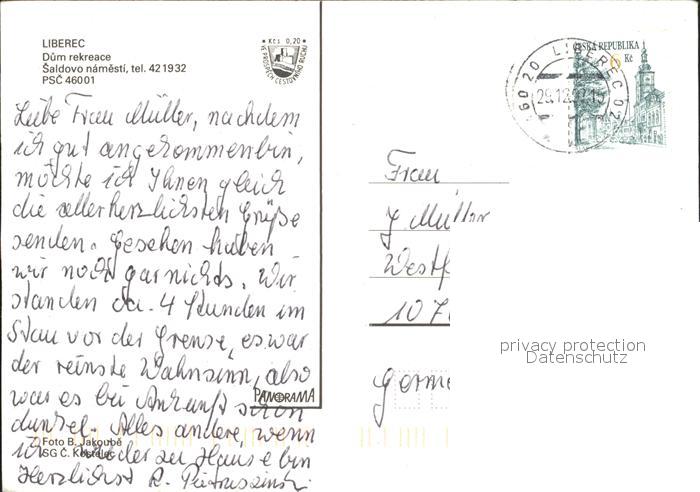 LIBEREC
Dům rekreace
Šaldovo náměstí, tel. 421932
PSČ 46001
Kčs 0,20
VE PROSPĚCH CESTOVNÍHO RUCHU
Liebe Frau Müller, nachdem
ich gut angekommen bin,
möchte ich Ihnen gleich
die allerherzlichsten Grüße
senden. Gesehen haben
wir noch gar nichts. Wir
standen ca. 4 Stunden im
Stau vor der Grense, es war
der reinste Wahnsinn, also
war es bei Ankunft schon
dunkel. Alles andere, wenn
ich wieder zu Hause bin
Herzlichst R.
PANORAMA
Foto B. Jakoubě
SG Č. Kostelec
ČESKÁ REPUBLIKA
6 Kč
LIBEREC 02
Frau
J. Müller
Westf
107
Germ
privacy protection
Datenschutz